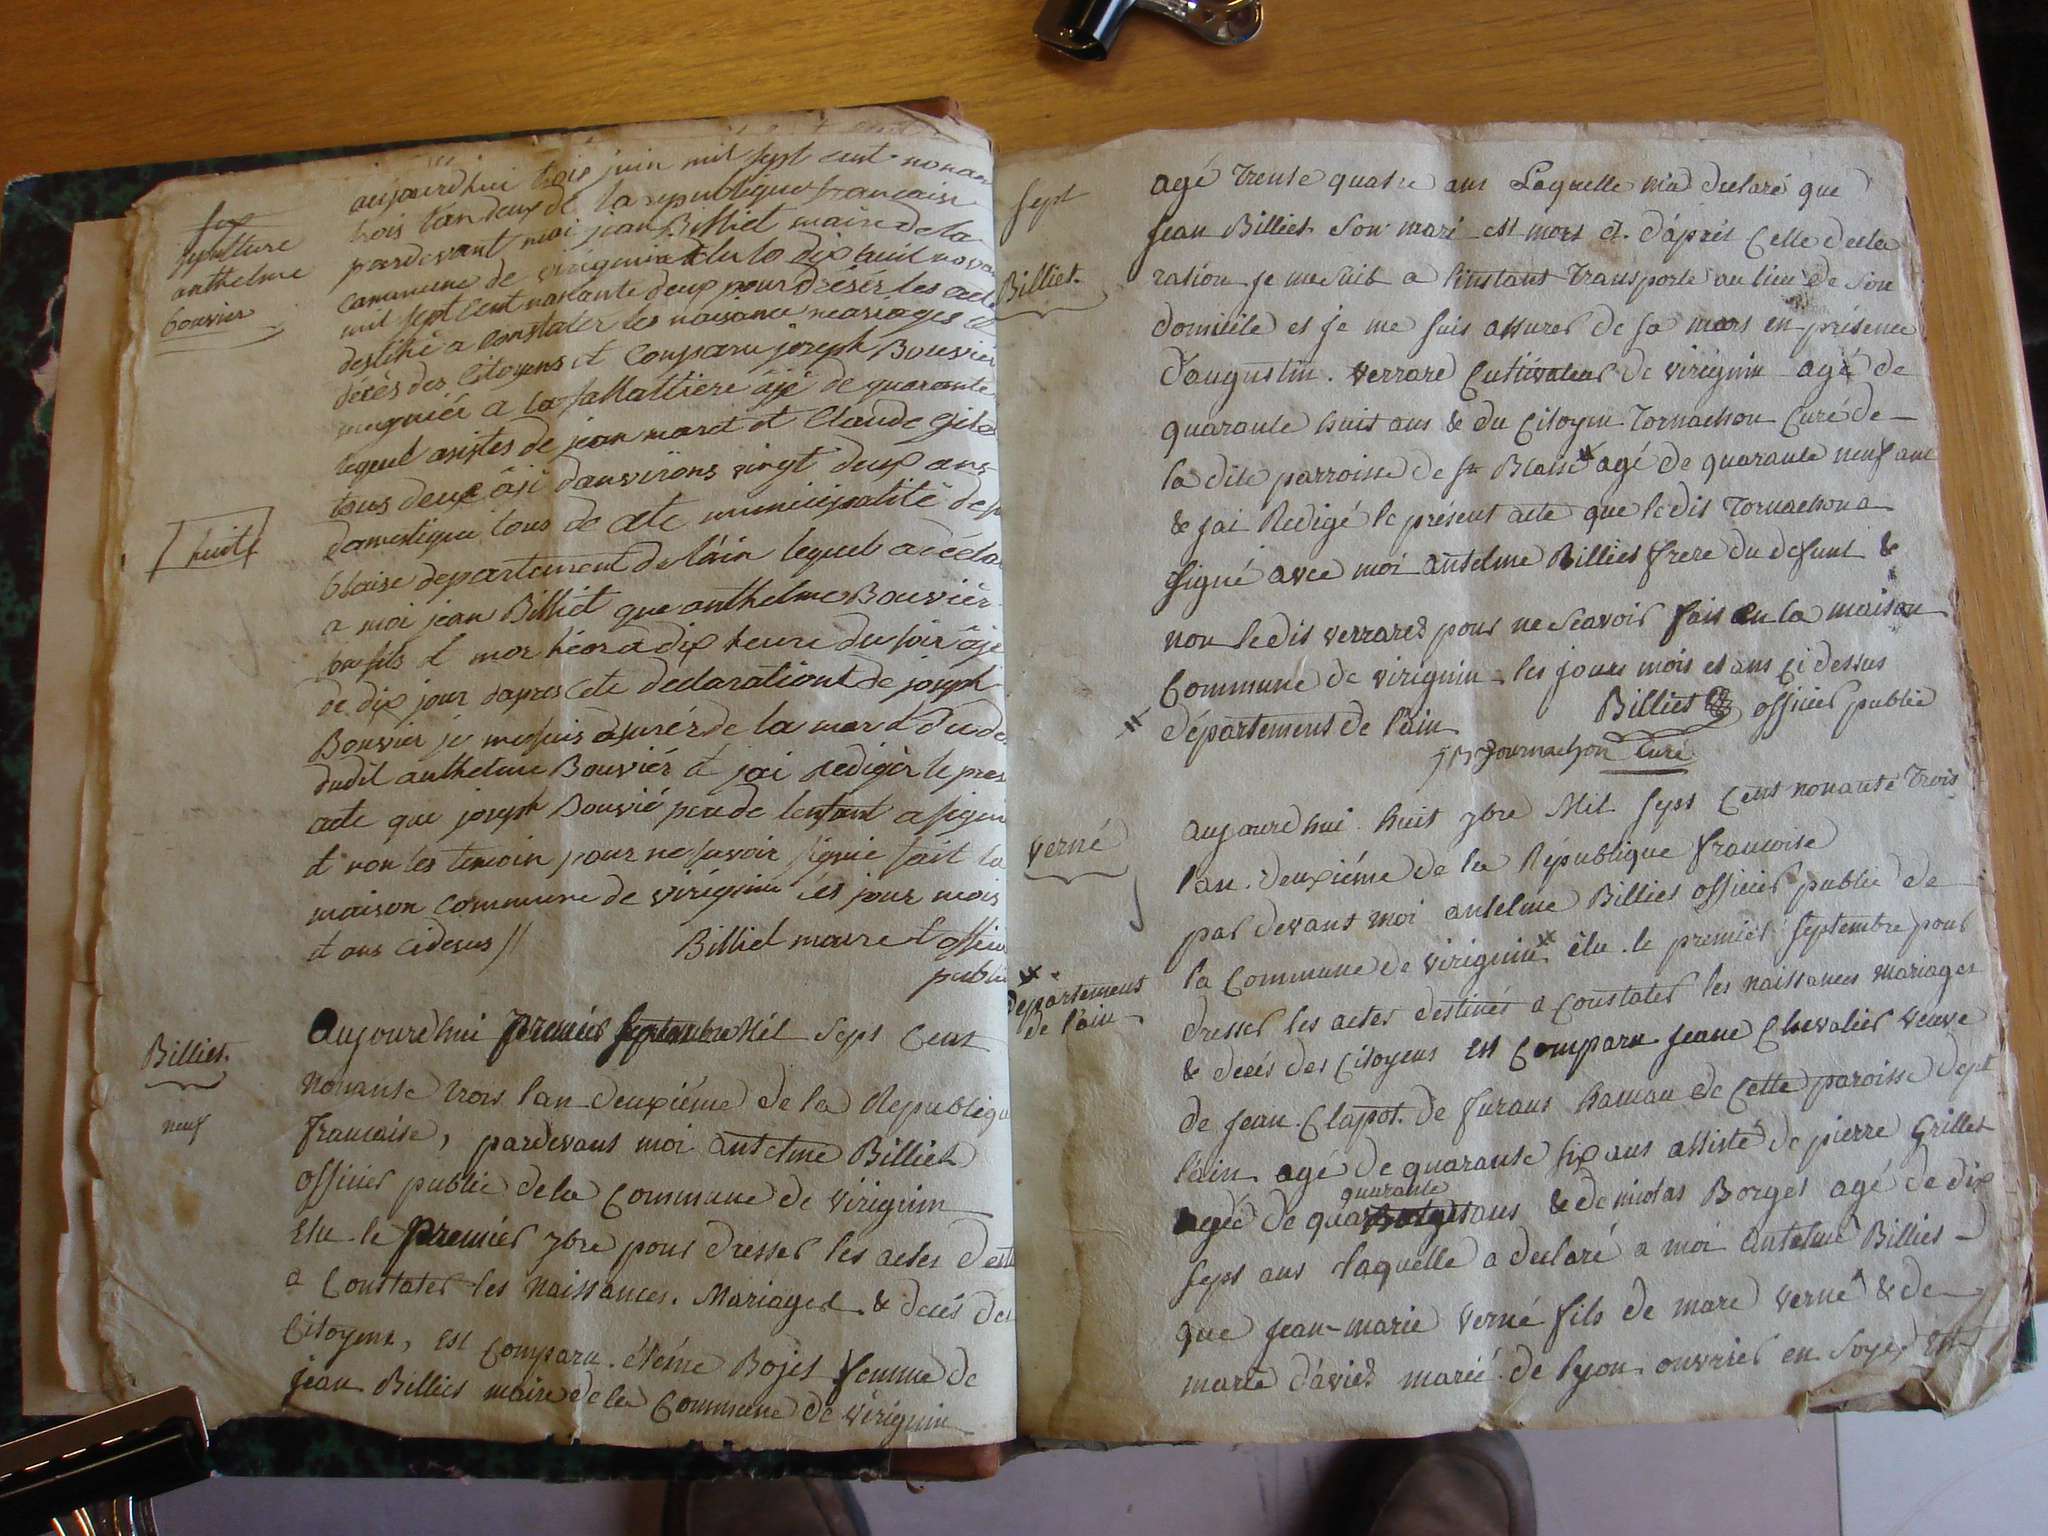 sepulture
anthelme
bouvier
huit
Billiet.
neuf
aujourdhui trois juin mil sept cent nonan
trois lan deux de la republique francaise
pardevant moi jean Billiet maire de la
commune de virignin élu le dix huit nova
mil sept cent nonante deux pour drésér les act
destiné a constater les naisance mariages et
décés des citoyens et comparu joseph Bouvier
magniér a la sallattiere âjé de quarante
lequel asistes de jean maret et Claude gile
tous deux âjé danvirons vingt deux ans
domestique tous de cete municipalité de s
blaise departement de lain lequel a décla
a moi jean Billiet que anthelme Bouviér
son fils et mor hier a dix heure du soir âjé
de dix jour dapres cete declarationt de joseph
Bouvier je me suis asuré de la mort dude
dudit anthelme Bouviér et jai redigér le pres
acte que joseph Bouvié pere de lenfant a signé
et non les temoin pour ne savoir signie fait la
maison commune de virignin les jour mois
et ans cidesus //
Billiet maire et officie
public
Aujourdhui premier septembre Mil Sept Cent
nonante trois lan deuxiéme de la Republique
francaise, pardevant moi antelme Billiet
officier public de la Commune de virignin
Elu le premier 7bre pour dresser les actes desti
a Constater les naissances. Mariages & decés des
Citoyens, est comparu étéine Bojet femme de
jean Billiet maire de la Commune de virignin
sept
Billiet.
verné
departement
de l'ain
agé trente quatre ans Laquelle m'a declaré que
jean Billiet son mari est mort et d'aprés Cette decla
ration je me suit a l'instant transporté au lieu de son
domicile et je me suis assurer de sa mort en présence
d'augustin. verrard Cultivateur de virignin agé de
quarante huit ans & du Citoyen Tornachon Curé de
la dite parroisse de st Blaise agé de quarante neuf ans
& jai Redigé le présent acte que le dit Tornachon a
signé avec moi antelme Billiet frere du defunt &
non le dit verrard pour ne scavoir fait en la maison
Commune de virignin les jours mois et ans ci dessus
departement de l'ain
Billiet officier public
Tournachon Curé
aujourdhui huit 7bre Mil Sept Cent nonante trois
l'an deuxiéme de la République francoise
par devant moi antelme Billiet officier public de
la Commune de virignin élu le premier septembre pour
dresser les actes destinés a Constater les naissances mariages
& decés des Citoyens est Comparu jeane Chevalier veuve
de jean Clapot de furans hamau de Cette paroisse dept
l'ain agé de quarante six ans assisté de pierre Grillet
quarante
agée de ans & de nicolas Borget agé de dix
sept ans laquelle a declaré a moi antelme Billiet
que jean-marie verné fils de marc verné & de
marie d'avied marié de lyon ouvrier en soye est